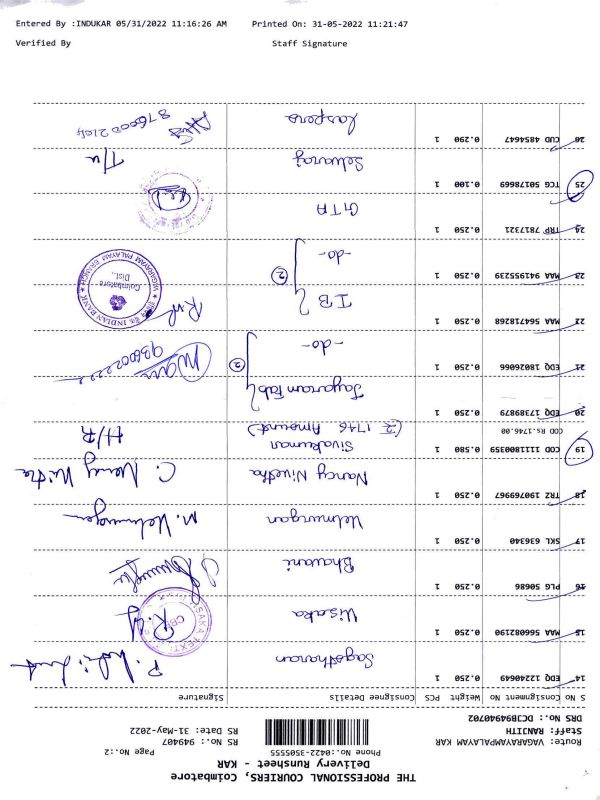 THE PROFESSIONAL COURIERS, Coimbatore
Delivery Runsheet - KAR
Phone No.::0422-3505555
Page No.:2
Route: VAGARAYAMPALAYAM KAR
RS No.: 949407
Staff: RANJITH
RS Date: 31-May-2022
DRS No.: DCJB94940702
S No Consignment No Weight PCS Consignee Details Signature
14 EDQ 12249649 0.250 1 Sagothanan
15 MAA 566082190 0.250 1 Visaka
16 PLG 50686 0.250 1 Bhavani
17 SKL 636340 0.250 1 Velmurgan M. Velmurugan
18 TRZ 190769967 0.250 1 Nancy Nivetha C. Nancy Nivetha
19 COD 111100359 0.500 1 Sivakumar H/R
COD Rs.1746.00 (₹ 1746 Amount)
20 EDQ 17389879 0.250 1 Jayaram Fab
21 EDQ 18026066 0.250 1 -do- 2
22 MAA 564718268 0.250 1 I B
23 MAA 941955239 0.250 1 -do- 2
INDIAN BANK
VAGARAYAM PALAYAM BRANCH
Coimbatore
Dist.,
24 TRP 7817321 0.250 1 GTA
25 TCG 50178669 0.100 1 Selvaraj
26 CUD 4854647 0.290 1 Caspero
Entered By :INDUKAR 05/31/2022 11:16:26 AM Printed On: 31-05-2022 11:21:47
Verified By Staff Signature